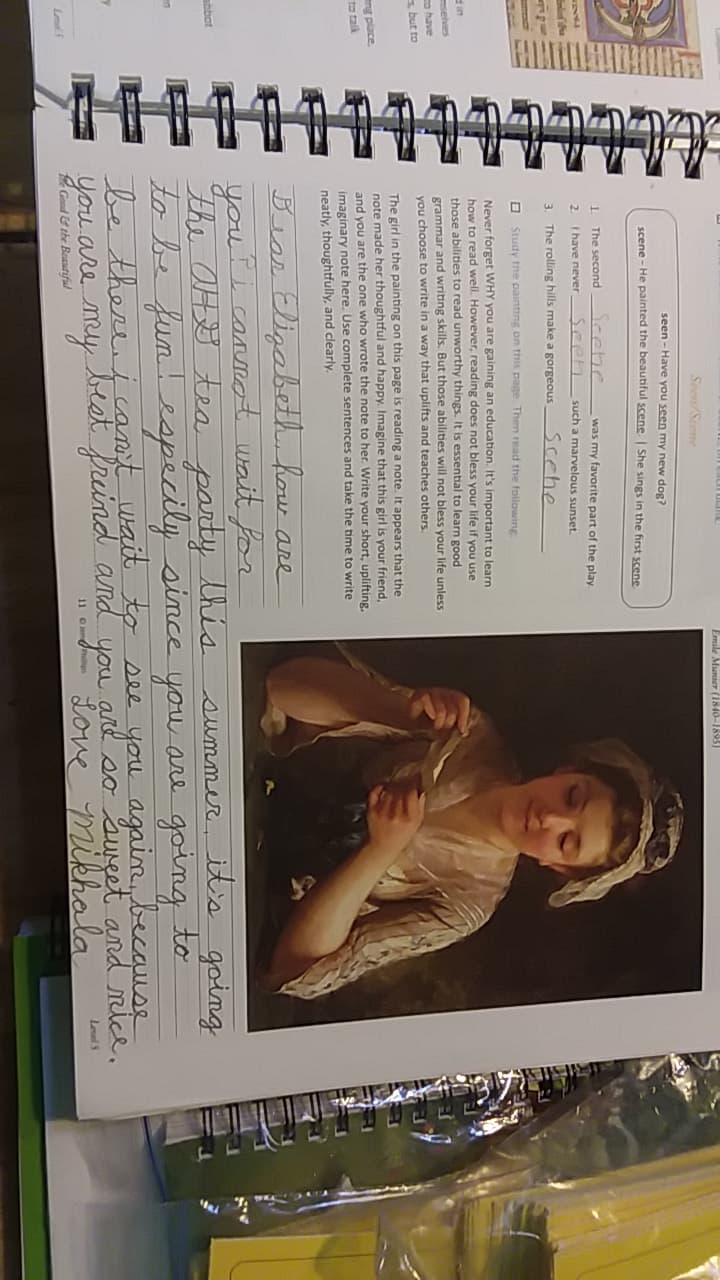 Emile Munier (1840–1895)
Seen/Scene
seen – Have you seen my new dog?
scene – He painted the beautiful scene. | She sings in the first scene.
1. The second Scene was my favorite part of the play.
2. I have never Seen such a marvelous sunset.
3. The rolling hills make a gorgeous Scene
Study the painting on this page. Then read the following:
Never forget WHY you are gaining an education. It's important to learn
how to read well. However, reading does not bless your life if you use
those abilities to read unworthy things. It is essential to learn good
grammar and writing skills. But those abilities will not bless your life unless
you choose to write in a way that uplifts and teaches others.
The girl in the painting on this page is reading a note. It appears that the
note made her thoughtful and happy. Imagine that this girl is your friend,
and you are the one who wrote the note to her. Write your short, uplifting,
imaginary note here. Use complete sentences and take the time to write
neatly, thoughtfully, and clearly.
Dear Elizabeth, how are
you? i cannot wait for
the tea party this summer, it's going
to be fun! especily since you are going to
be there. i can't wait to see you again, because
you are my best freind and you are so sweet and nice.
Love Mikhala
The Good & the Beautiful
11
Level 5
d in
mselves
to have
s, but to
ng place,
to talk
abbot
Level 5